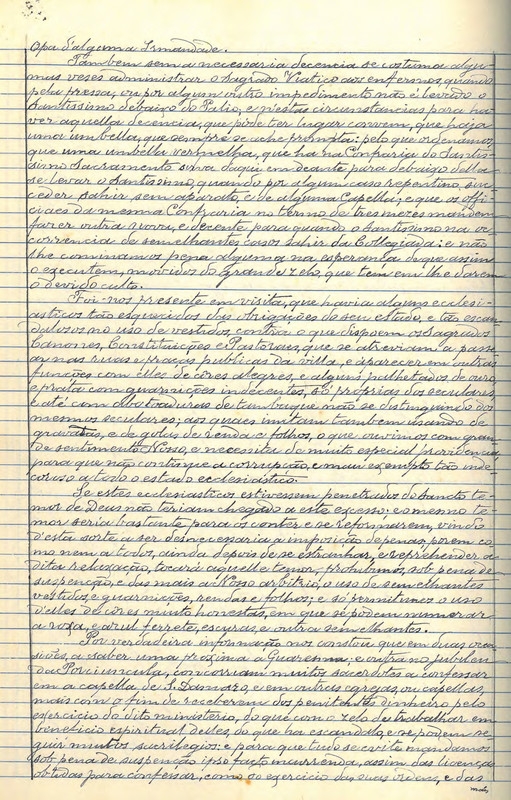 Opa d'alguma Irmandade.
Tambem sem a necessaria decencia se costuma algu-
mas veses administrar o Sagrado Viatico aos enfermos, quando
pela pressa, ou por algum outro impedimento não é levado o
Santissimo debaixo do Palio, e n'estas circunstancias para ha-
ver aquella decencia, que póde ter lugar convem, que haja
uma umbella, que sempre se ache prompta: pelo que ordenamos,
que uma umbella vermelha, que ha na Confraria do Santis-
simo Sacramento sirva daqui em deante para debaixo della
se levar o Santissimo, quando por algum caso repentino, suc-
ceder sahir sem aparato, e de alguma Capella; e que os offi-
ciaes da mesma Confraria no termo de tres mezes mandem
fazer outra nova, e decente para quando o Santissimo na oc-
correncia de semelhantes casos sahir da Collegiada: e não
lhe cominamos pena alguma na esperança de que assim
o executem, movidos do grande zelo, que tem em lhe darem
o devido culto.
Foi-nos presente em visita, que havia alguns ecclesi-
asticos tão esquecidos das obrigações do seu estado, e tão escan-
dalozos no uso de vestidos, contra o que dispoem os Sagrados
Canones, Constituições e Pastoraes, que se atreviam a passe-
ar nas ruas e praças publicas da villa, e aparecer em outras
funcões com elles de côres alegres, e alguns
e prata com guarnicões indecentes, só próprias dos seculares,
e até com abotoaduras de tambaque não se distinguindo dos
mesmos seculares; aos quaes imitam tambem usando de
gravatas, e de golas de renda e folhos, o que ouvimos com gran-
de sentimento Nosso, e necessita de muito especial providencia
para que não continue a corrupção, e mau exemplo tão inde-
coroso a todo o estado ecclesiastico.
Se estes ecclesiasticos estivessem penetrados do Santo te-
mor de Deus não teriam chegado a este excesso: e o mesmo te-
mor seria bastante para os conter e se reformarem, vindo
d'esta sorte a ser desnecessaria a imposição de penas, porem co-
mo nem a todos, ainda depois de se estranhar, e reprehender a
dita relaxação, tocará aquelle temor, prohibimos, sob pena de
suspenção, e das mais a Nosso arbitrio, o uso de semelhantes
vestidos, e guarnições, rendas e folhos; e só permitimos o uso
d'elles de côres muito honestas, em que se pódem numerar
a roxa, e azul ferrete, escuras, e outra semelhantes.
Por verdadeira informação nos constou que em duas occa-
siões, a saber uma proxima a Quaresma, e outra no jubileu
da Porciuncula, concorriam muitos sacerdotes a confessar
em a capella de S. Damazo, e em outras egrejas, ou capellas,
mais com o fim de receberem dos penitentes dinheiro pelo
exercicio do dito ministério, do que com o zelo de trabalhar em
beneficio espiritual delles, do que ha escandalo, e se podem se-
guir muitos sacrilegios: e para que tudo se evite mandamos
sob pena de suspenção ipso facto incurrenda, assim das licenças
obtidas para confessar, como do exercicio das suas ordens, e das
mais